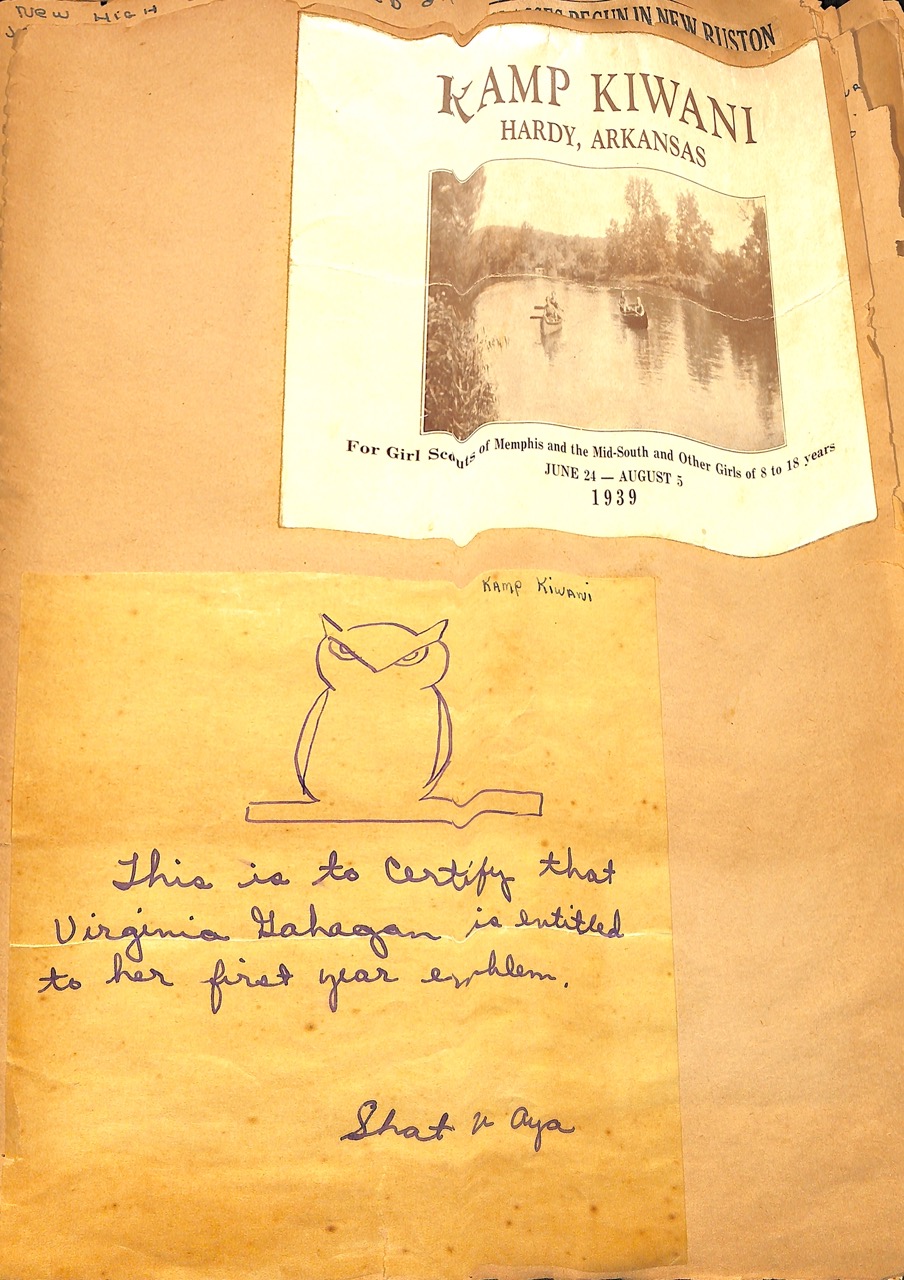 New High
BEGUN IN NEW RUSTON
KAMP KIWANI
HARDY, ARKANSAS
For Girl Scouts of Memphis and the Mid-South and Other Girls of 8 to 18 years
JUNE 24 — AUGUST 5
1939
KAMP KIWANI
This is to certify that
Virginia Gahagan is entitled
to her first year emblem.
Shat n Aya